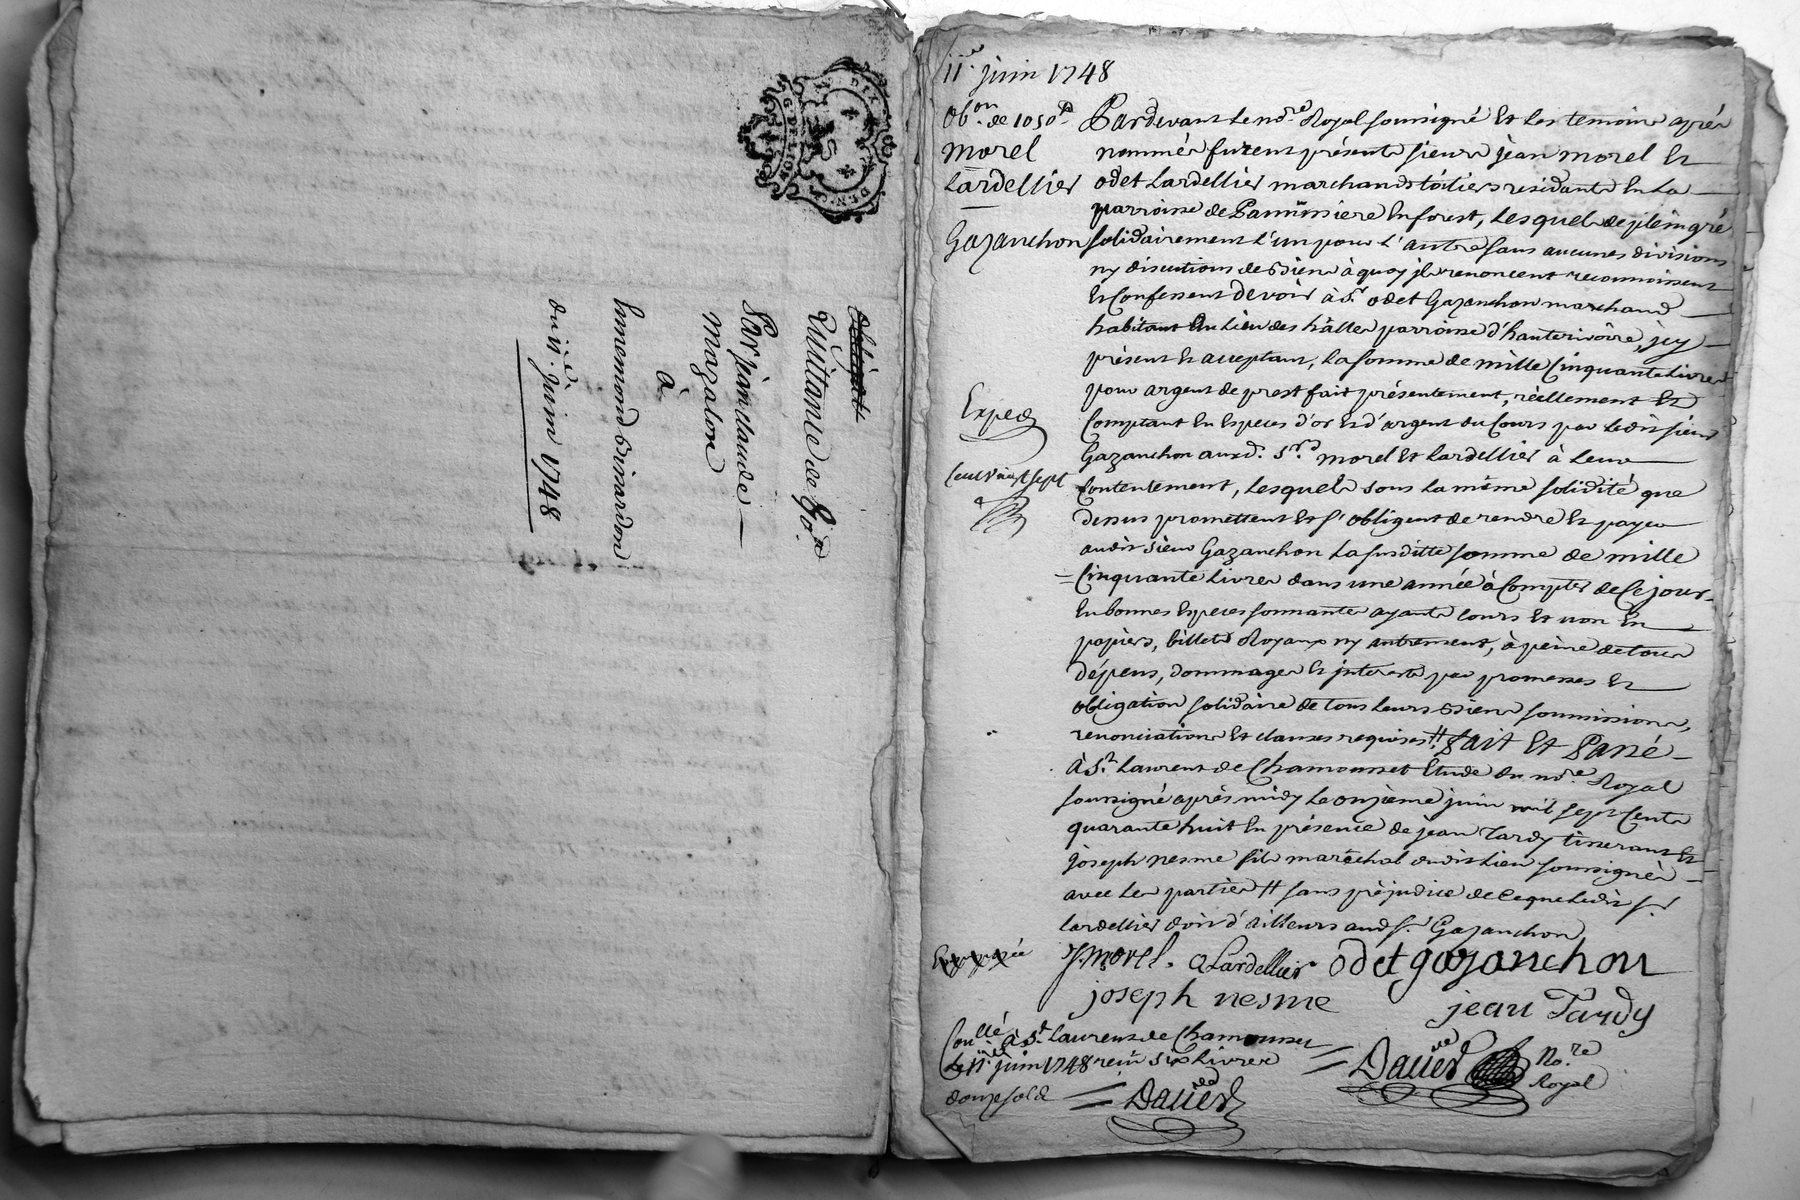 DIX DEN
G. DE LION
Obligat
Quittance de 80.#
Par jean claude
Magalon
à
himemond Brisardon
du 11.e juin 1748
11.e juin 1748
Ob.on de 1050#
Morel
Lardellier
Gazanchon
Exped
Cent vingt sept
Pardevant le no.re Royal soussigné Et les temoins aprés
nommés furent présents sieurs jean morel Et
odet Lardellier marchands toiliers residants En La
parroisse de Panissiere En forest, Lesquels de plein gré
solidairement L'un pour L'autre sans aucunes divisions
ny discutions de Biens à quoy jls renoncent reconnoissent
Et Confessent devoir à S.r odet Gazanchon marchand
habitant Au Lieu des hâlles parroisse d'hauterivoire, jcy
présent Et acceptant, La somme de mille Cinquante Livres
pour argent de prest fait présentement, réellement Et
Comptant En Especes d'or Et d'argent du Cours par Ledit sieur
Gazanchon auxd. S.rs morel Et Lardellier à Leur
Contentement, Lesquels sous La même solidité que
dessus promettent Et s'obligent de rendre Et payer
audit sieur Gazanchon La susditte somme de mille
Cinquante Livres dans une année à Compter de Ce jour
En bonnes Especes sonnantes ayants Cours Et non En
papiers, billets Royaux ny autrement, à peine de tous
dépens, dommages Et jnterests par promesses Et
obligation solidaire de tous Leurs Biens soumissions,
renonciations Et clauses requises # fait Et Passé
à S.t Laurent de Chamousset Etude du no.re Royal
soussigné après midy Le onzieme juin mil sept Cents
quarante huit En présence de jean Tardy tisserant Et
joseph nesme fils maréchal dudit Lieu soussignés
avec Les parties # sans préjudice de Ce que Ledit s.r
Lardellier doit d'ailleurs aud s.r Gazanchon
J morel. O Lardellier odet gazanchon
joseph nesme jean Tardy
Con.llé à S.t Laurent de Chamousset
Le 11.e juin 1748 reçu Six Livres
douze sols
Dauer
Dauer No.re
Royal